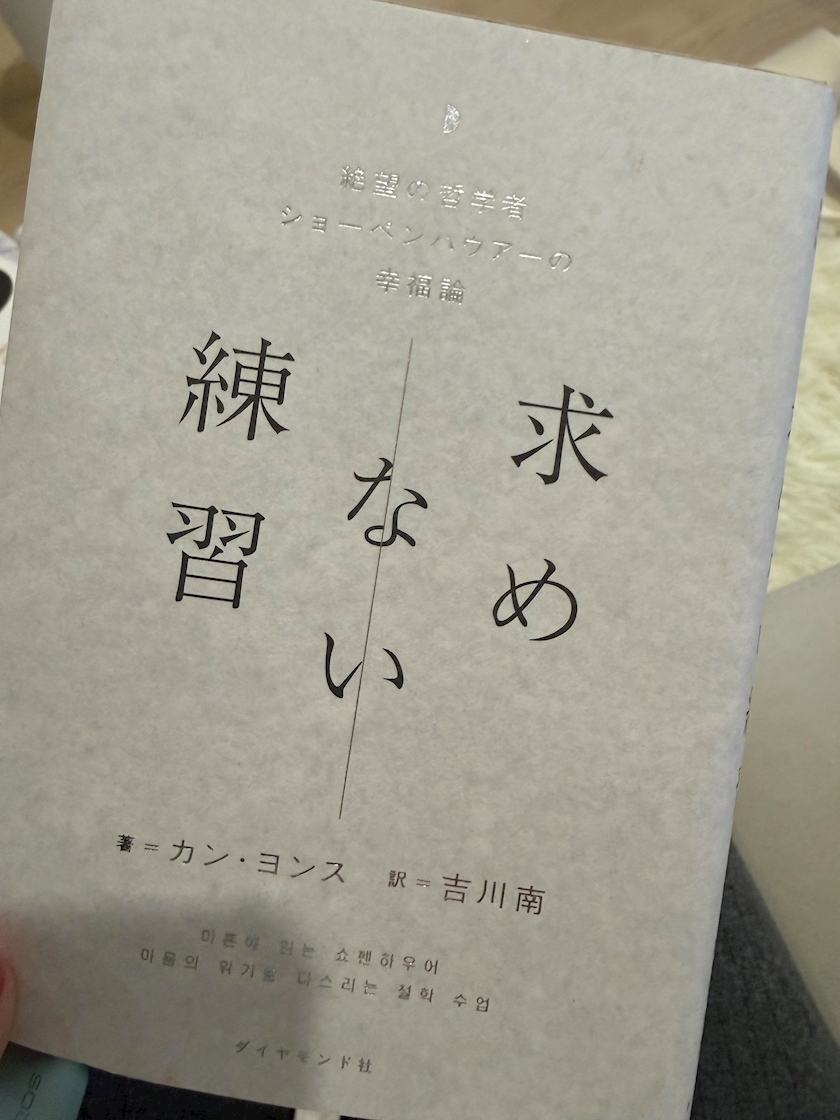 絶望の哲学者
ショーペンハウアーの
幸福論
求め
ない
練習
著=カン・ヨンス 訳=吉川南
마흔에 읽는 쇼펜하우어
마음의 위기를 다스리는 철학 수업
ダイヤモンド社